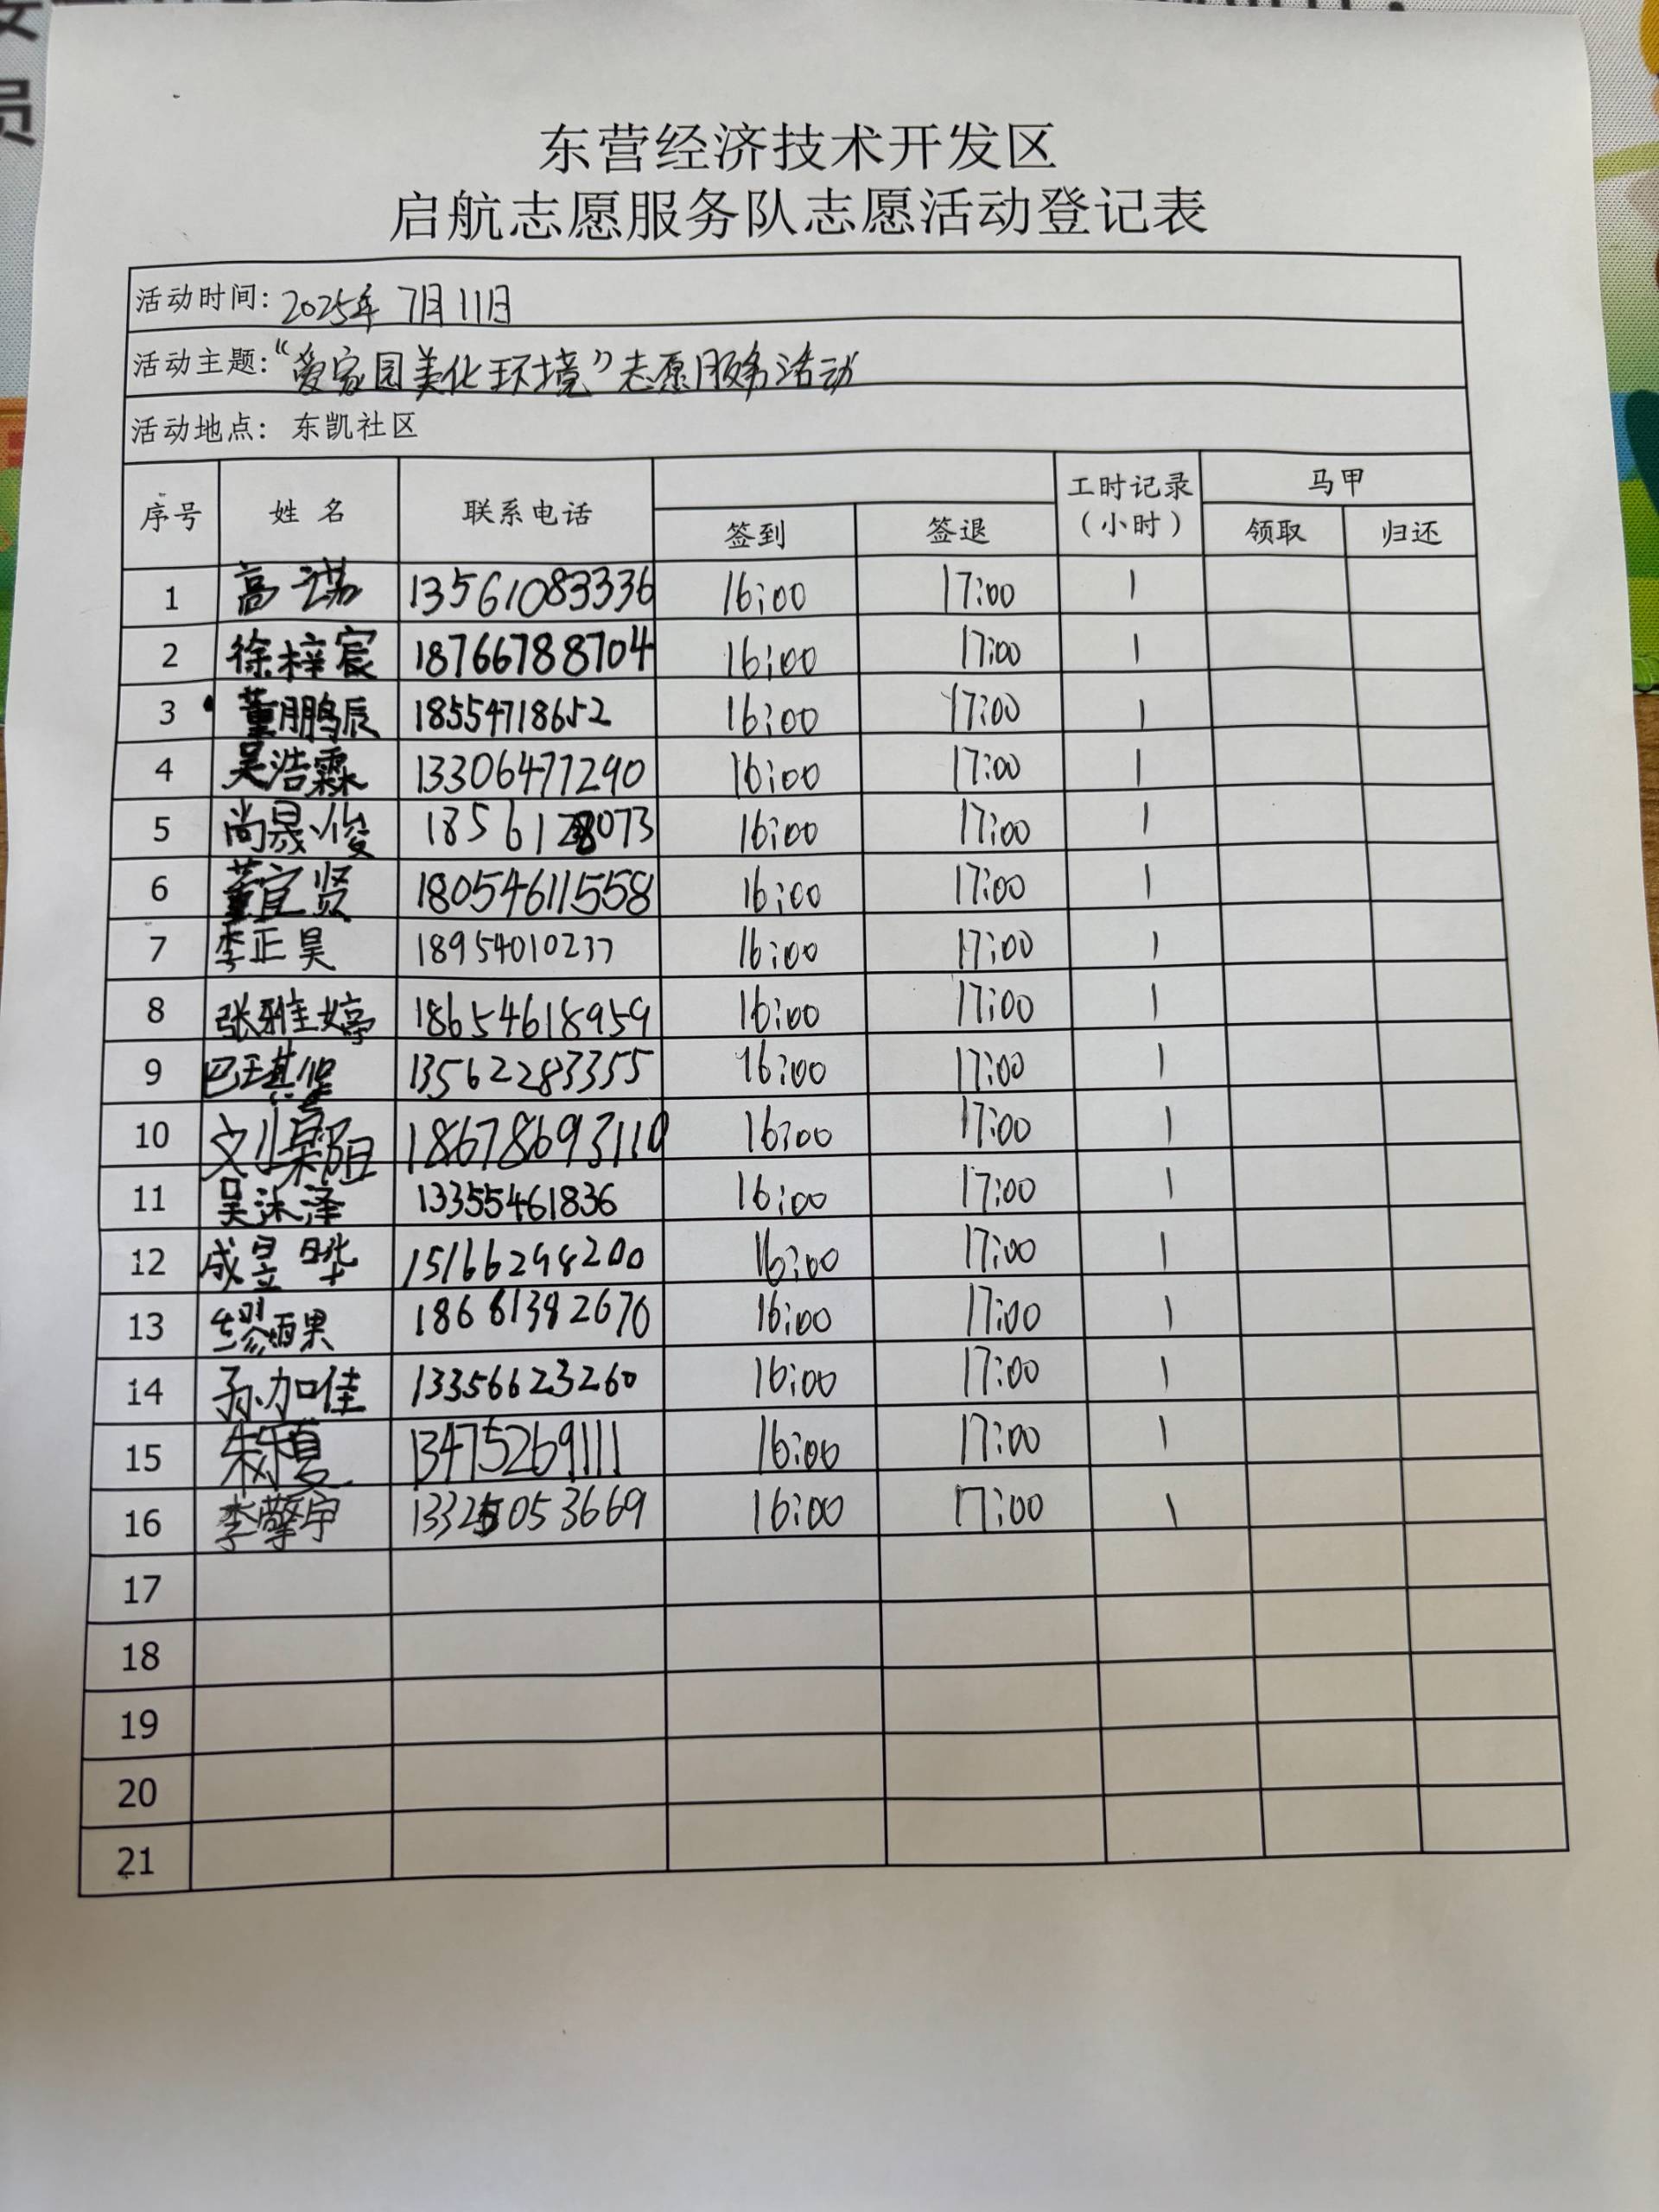 员
东营经济技术开发区
启航志愿服务队志愿活动登记表
活动时间: 2025年 7月11日
活动主题:“爱家园美化环境”志愿服务活动
活动地点: 东凯社区
序号 姓名 联系电话 签到 签退 工时记录(小时) 马甲 领取 归还
1 高诺 13561083336 16:00 17:00 1
2 徐梓宸 18766788704 16:00 17:00 1
3 董鹏辰 18554718652 16:00 17:00 1
4 吴浩霖 13306477290 16:00 17:00 1
5 尚晟俊 16:00 17:00 1
6 董宜贤 18054611558 16:00 17:00 1
7 李正昊 18954010237 16:00 17:00 1
8 张雅婷 18654618959 16:00 17:00 1
9 巴 13562283355 16:00 17:00 1
10 刘 阳 18678693110 16:00 17:00 1
11 吴沐泽 13355461836 16:00 17:00 1
12 成昱晔 15166298200 16:00 17:00 1
13 缪雨果 18661392670 16:00 17:00 1
14 孙加佳 13356623260 16:00 17:00 1
15 朱 夏 13475269111 16:00 17:00 1
16 李擎宇 13325053669 16:00 17:00 1
17
18
19
20
21